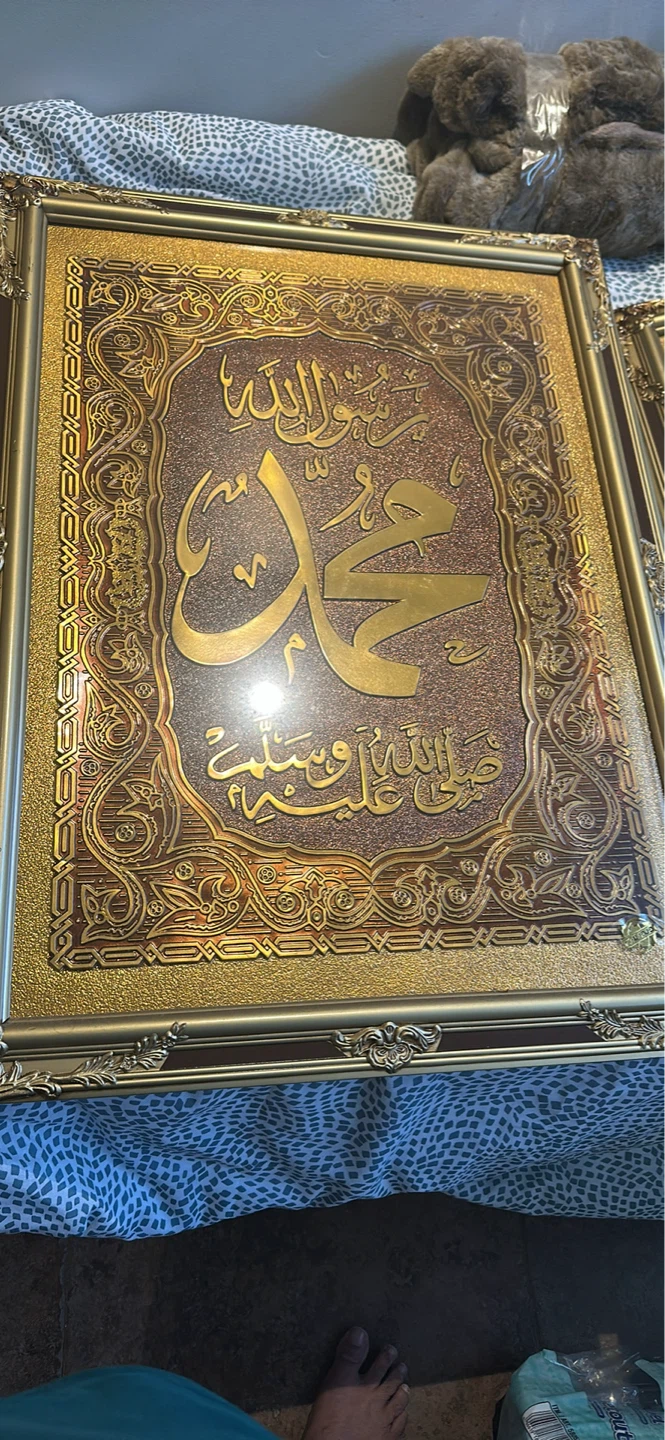 رَسُولُ اللّٰه
مُحَمَّدٌ
صَلَّى اللّٰهُ عَلَيْهِ وَسَلَّمَ